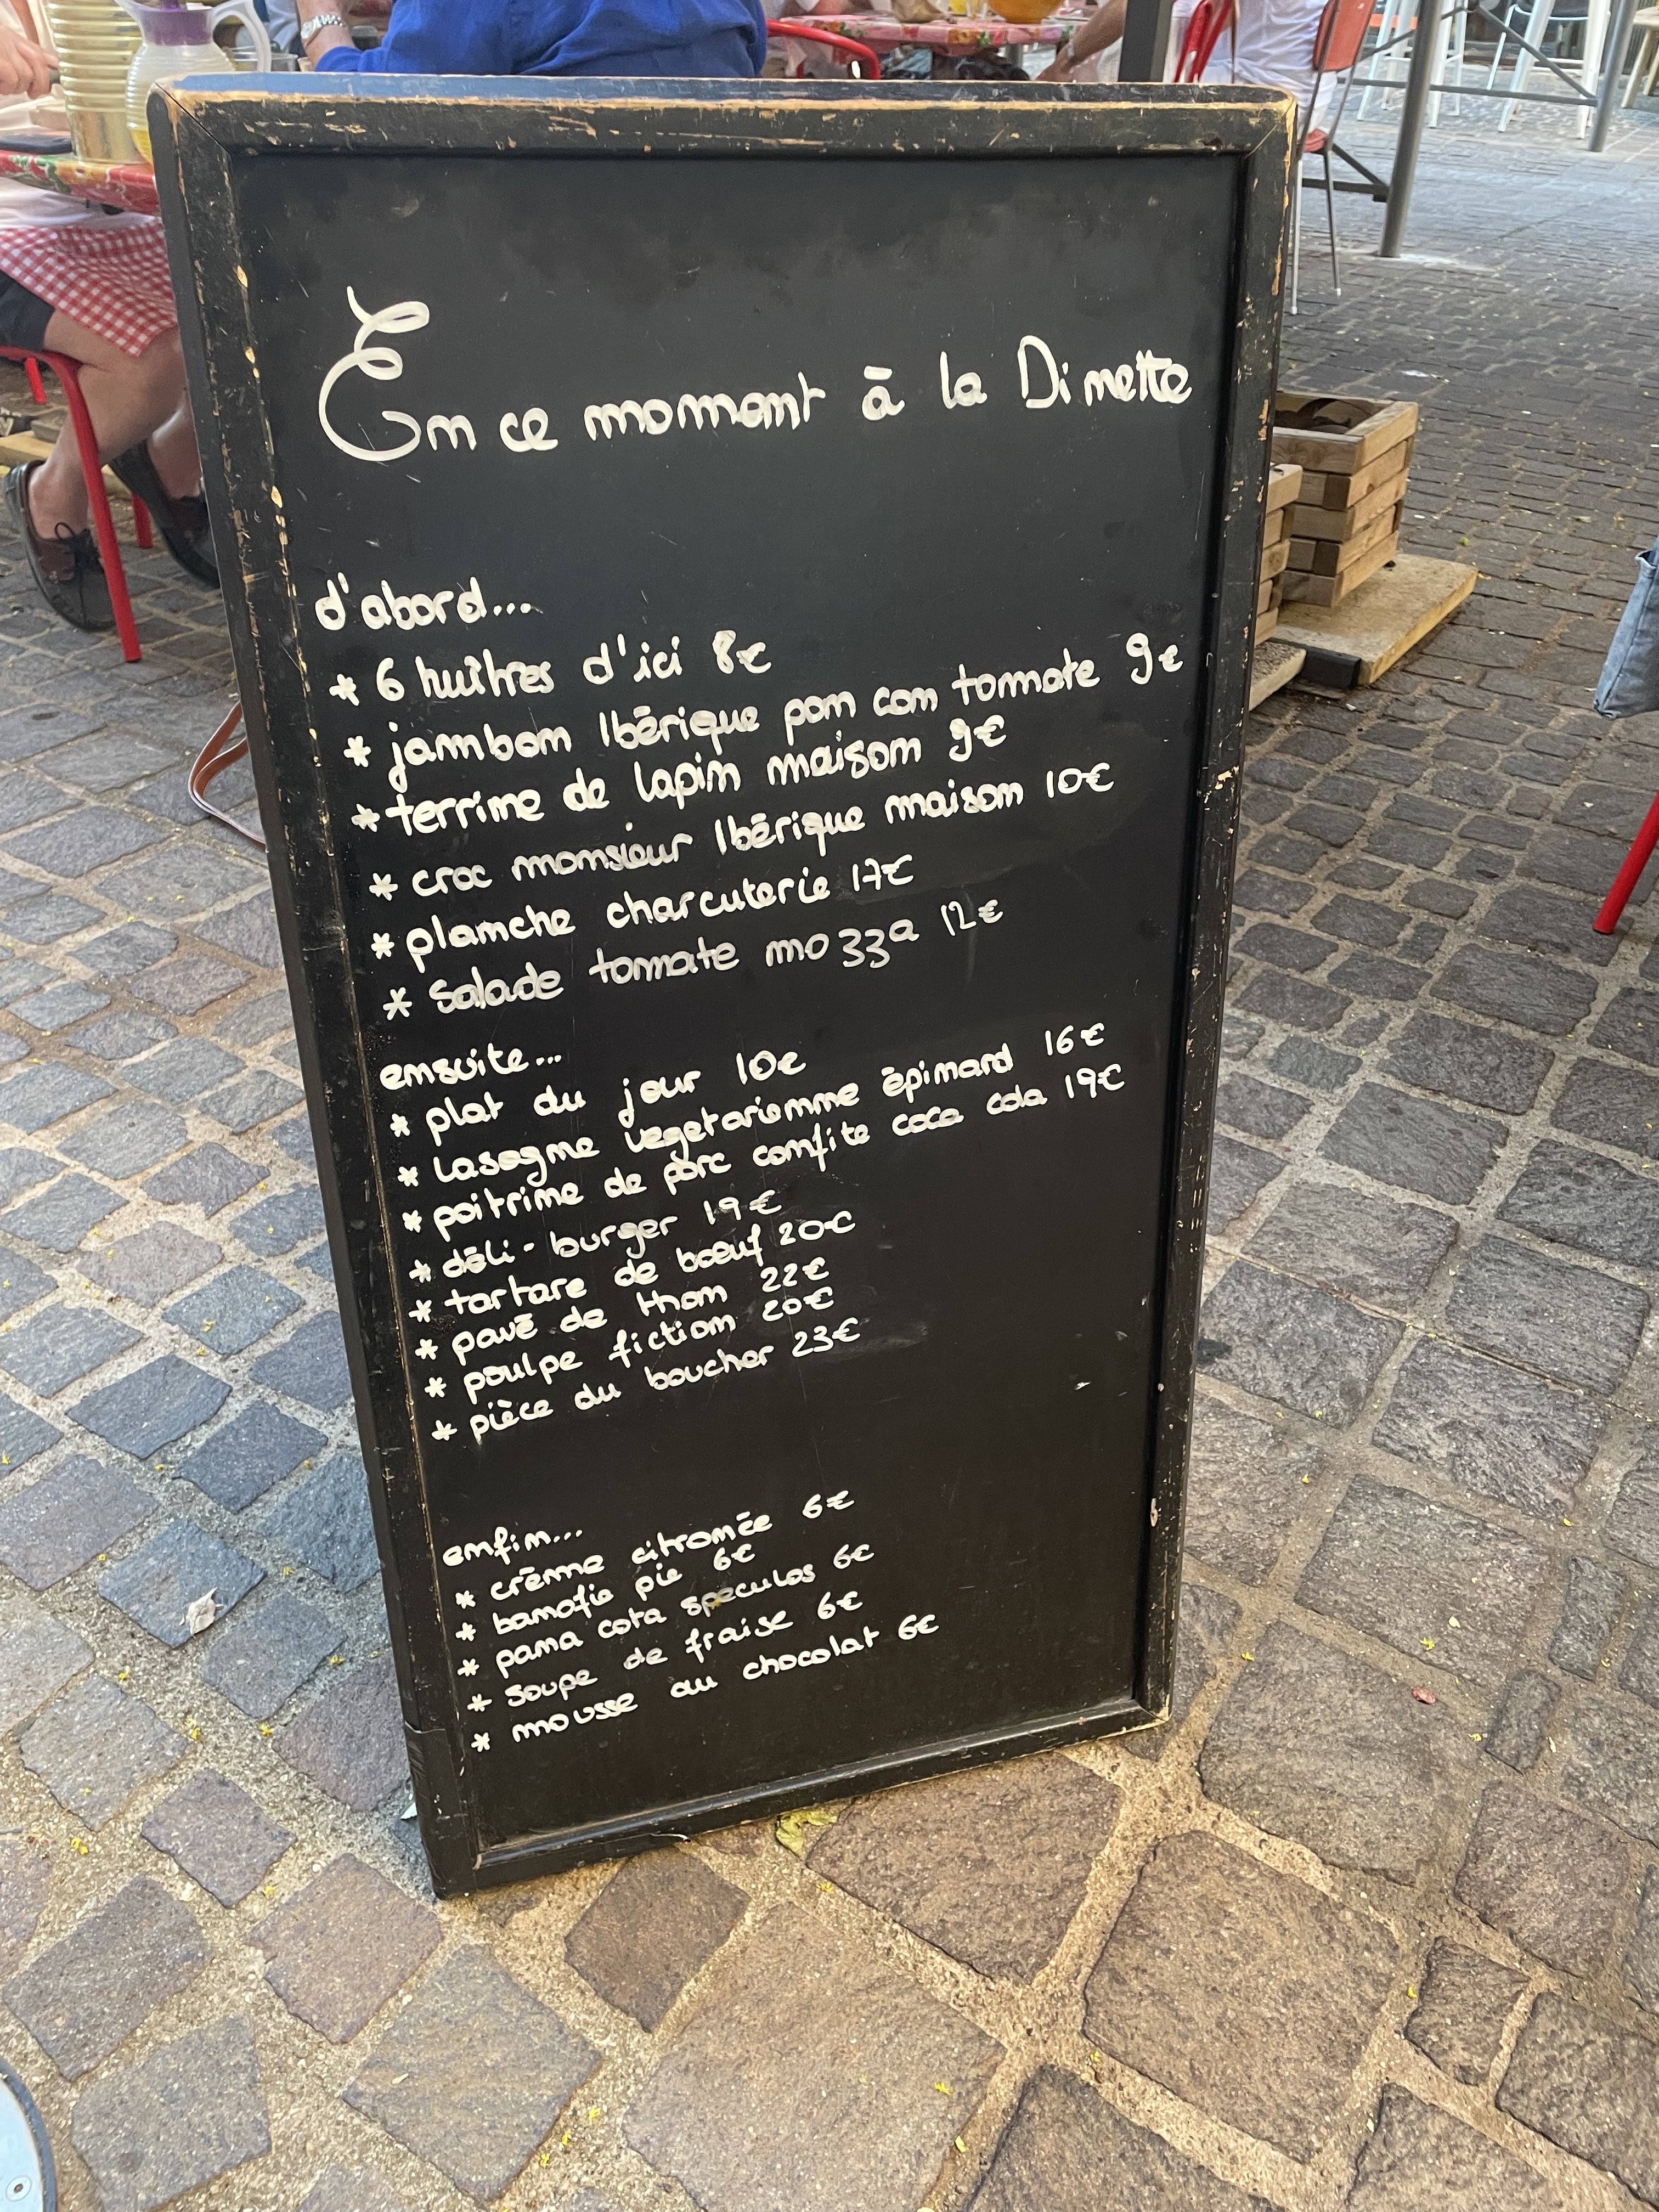 En ce moment à la Dinette
d'abord...
* 6 huîtres d'ici 8€
* jambon Ibérique pan con tomate 9€
* terrine de lapin maison 9€
* croc monsieur Ibérique maison 10€
* planche charcuterie 17€
* Salade tomate mozza 12€
ensuite...
* plat du jour 10€
* Lasagne vegetarienne épinard 16€
* poitrine de porc confite coca cola 19€
* déli-burger 19€
* tartare de bœuf 20€
* pavé de thon 22€
* poulpe fiction 20€
* pièce du boucher 23€
enfin...
* crème citronée 6€
* banofie pie 6€
* pana cota speculos 6€
* soupe de fraise 6€
* mousse au chocolat 6€